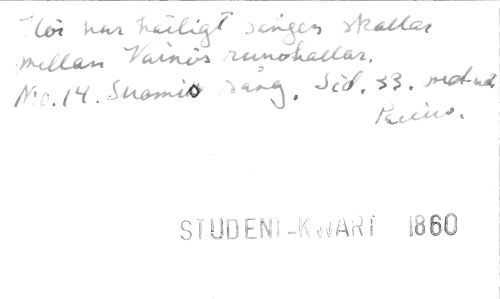 Hör hur härligt sången skallar
mellan Väinös runohallar.
N:o. 14. Suomis sång. Sid. 33.
Pacius.
STUDENT-KVART 1860